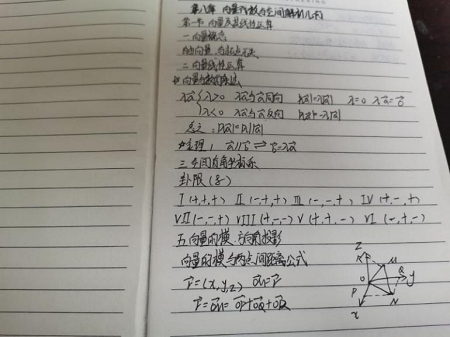 第八章 向量代数与空间解析几何
第一节 向量及其线性运算
一 向量概念
自由向量 与起点无关
二 向量线性运算
向量与数的乘法
λa⃗ {λ>0 λa⃗与a⃗同向 |λa⃗|=λ|a⃗| λ=0 λa⃗=0⃗
λ<0 λa⃗与a⃗反向 |λa⃗|=-λ|a⃗|
总之：|λa⃗|=|λ||a⃗|
定理1 a⃗∥b⃗ ⇌ b⃗=λa⃗
三 空间直角坐标系
卦限(8个)
I(+,+,+) II(-,+,+) III(-,-,+) IV(+,-,+)
VII(-,-,+) VIII(+,-,-) V(+,+,-) VI(-,+,-)
五 向量的模、方向角、投影
向量的模与两点间距离公式
r⃗=(x,y,z) OM⃗=r⃗
r⃗=OM⃗=OP⃗+OQ⃗+OR⃗
z
R
M
O
Q
y
P
N
x